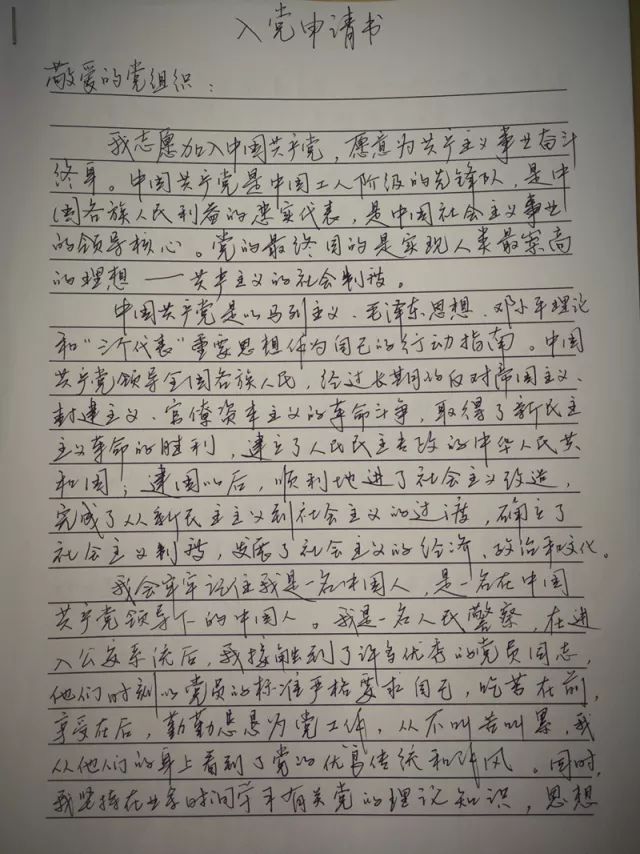 入党申请书
敬爱的党组织：
我志愿加入中国共产党，愿意为共产主义事业奋斗
终身。中国共产党是中国工人阶级的先锋队，是中
国各族人民利益的忠实代表，是中国社会主义事业
的领导核心。党的最终目的是实现人类最崇高
的理想——共产主义的社会制度。
中国共产党是以马列主义、毛泽东思想、邓小平理论
和“三个代表”重要思想作为自己的行动指南。中国
共产党领导全国各族人民，经过长期的反对帝国主义、
封建主义、官僚资本主义的革命斗争，取得了新民主
主义革命的胜利，建立了人民民主专政的中华人民共
和国；建国以后，顺利地进了社会主义改造，
完成了从新民主主义到社会主义的过渡，确立了
社会主义制度，发展了社会主义的经济、政治和文化。
我会牢牢记住我是一名中国人，是一名在中国
共产党领导下的中国人。我是一名人民警察，在进
入公安系统后，我接触到了许多优秀的党员同志，
他们时刻以党员的标准严格要求自己，吃苦在前，
享受在后，勤勤恳恳为党工作，从不叫苦叫累，我
从他们的身上看到了党的优良传统和作风。同时，
我坚持在业余时间学习有关党的理论知识，思想